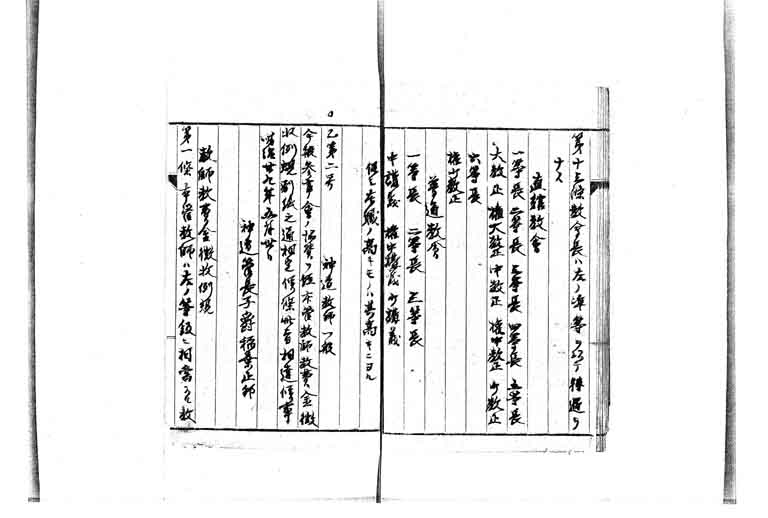 第十三條教会長ハ左ノ準等ヲ以テ待遇ヲ
ナス
直轄教会
一等長 二等長 三等長 四等長 五等長
大教正 権大教正 中教正 権中教正 少教正
六等長
権少教正
普通教会
一等長 二等長 三等長
中講義 権中講義 少講義
但シ本職ノ高キモノハ其高キニヨル
乙第二号
神道教師一般
今般参事会ノ決議ヲ経本管教師教費金徴
収例規別紙之通相定候條此旨相達候事
明治廿九年五月卅日
神道管長子爵稲葉正邦
教師教費金徴收例規
第一條 本管教師ハ左ノ等級ニ相當スル教